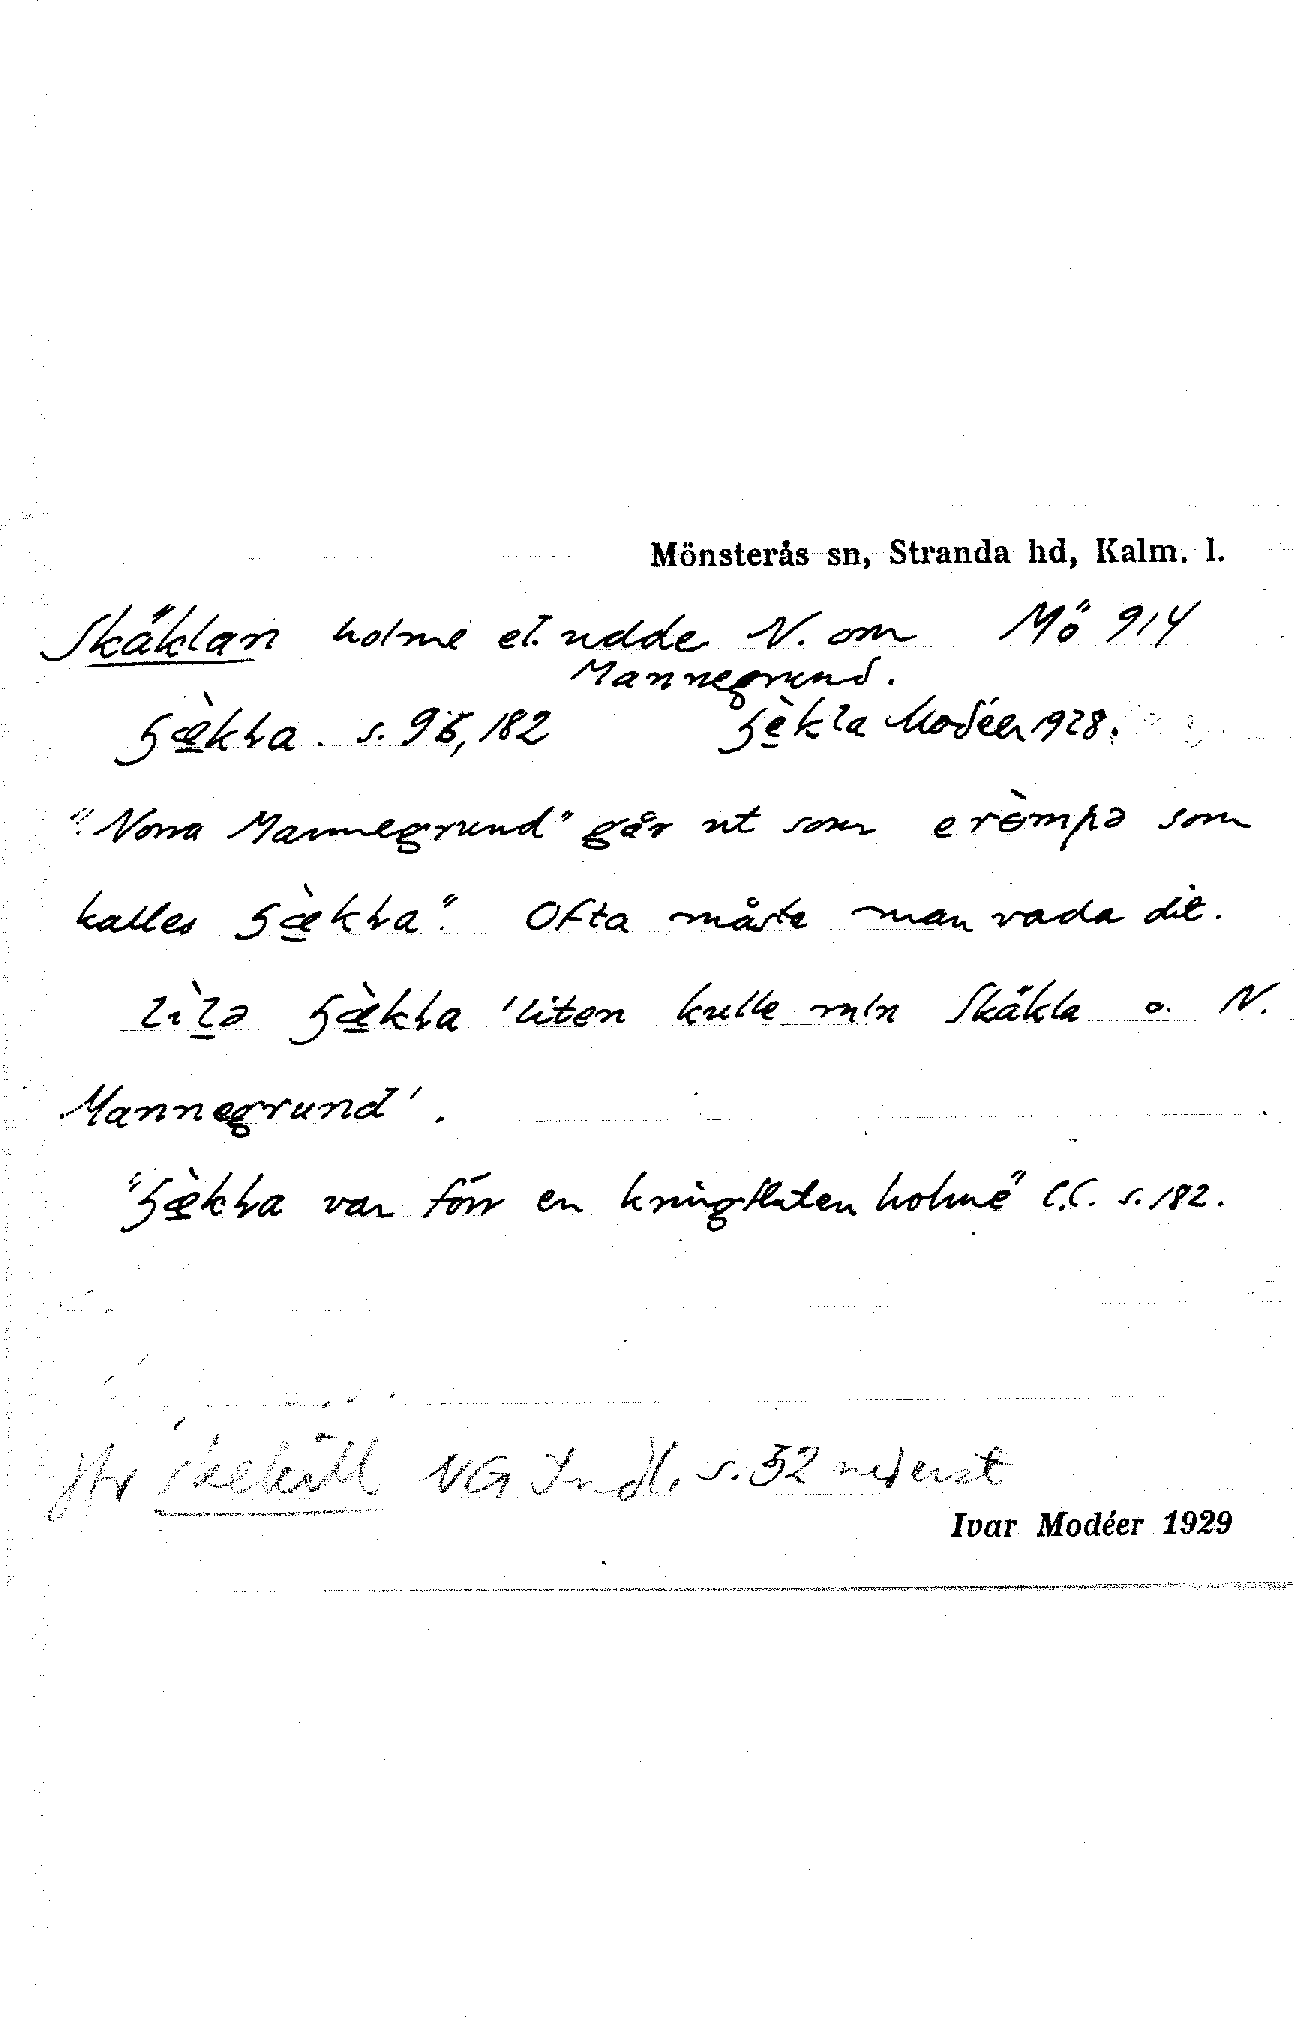 Mönsterås sn, Stranda hd, Kalm. l.
Skäklan holme el. udde N. om Mö 914
Mannegrund.
ʂæ̀kla. s. 95, 182 ʂèkla Modéer 1928.
"Norra Mannegrund" går ut som e ròmpə som
kalles ʂæ̀kla". Ofta måste man vada dit.
lìlə ʂæ̀kla 'liten kulle mln Skäkla o. N.
Mannegrund'.
"ʂæ̀kla var förr en kringfluten holme" C.C. s. 182.
jfr skekäll NG Indl. s. 32 nederst
Ivar Modéer 1929